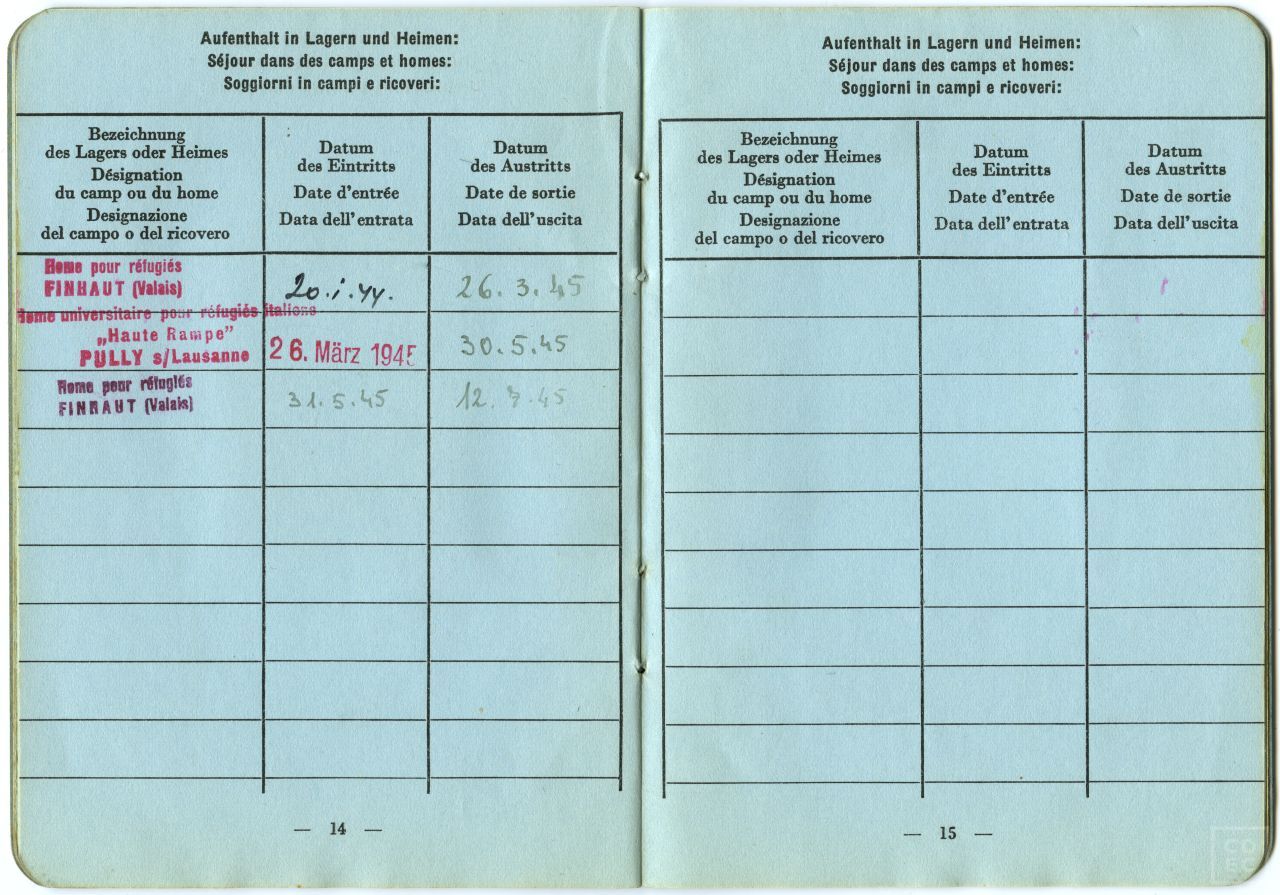 Aufenthalt in Lagern und Heimen:
Séjour dans des camps et homes:
Soggiorni in campi e ricoveri:
Bezeichnung
des Lagers oder Heimes
Désignation
du camp ou du home
Designazione
del campo o del ricovero
Datum
des Eintritts
Date d'entrée
Data dell'entrata
Datum
des Austritts
Date de sortie
Data dell'uscita
Home pour réfugiés
FINHAUT (Valais)
20.i.44.
26.3.45
Home universitaire pour réfugiés italiens
„Haute Rampe"
PULLY s/Lausanne
26. März 1945
30.5.45
Home pour réfugiés
FINHAUT (Valais)
31.5.45
12.7.45
— 14 —
Aufenthalt in Lagern und Heimen:
Séjour dans des camps et homes:
Soggiorni in campi e ricoveri:
Bezeichnung
des Lagers oder Heimes
Désignation
du camp ou du home
Designazione
del campo o del ricovero
Datum
des Eintritts
Date d'entrée
Data dell'entrata
Datum
des Austritts
Date de sortie
Data dell'uscita
— 15 —